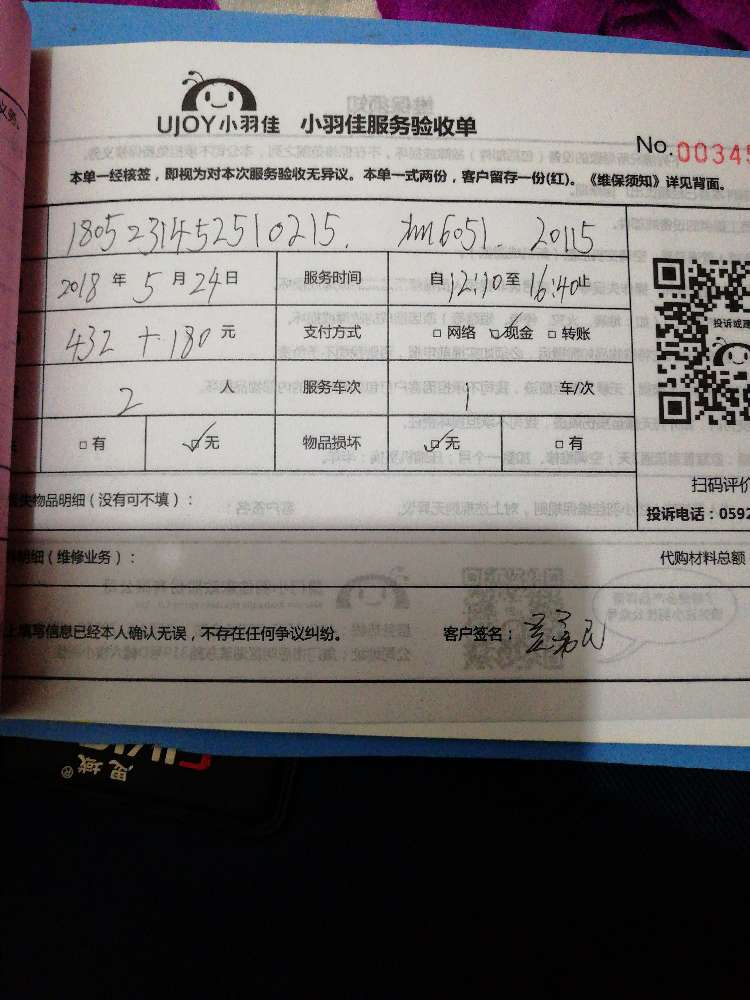 UJOY小羽佳 小羽佳服务验收单
No.00345
本单一经核签，即视为对本次服务验收无异议。本单一式两份，客户留存一份(红)。《维保须知》详见背面。
1805231452510215. 6051. 20115
2018年5月24日 服务时间 自12:10至16:40止
432+180元 支付方式 网络 现金 转账
投诉或建
2人 服务车次 1车/次
有 无 物品损坏 无 有
扫码评价
失物品明细（没有可不填）：
投诉电话：0592
明细（维修业务）： 代购材料总额
上填写信息已经本人确认无误，不存在任何争议纠纷。 客户签名：
思域®